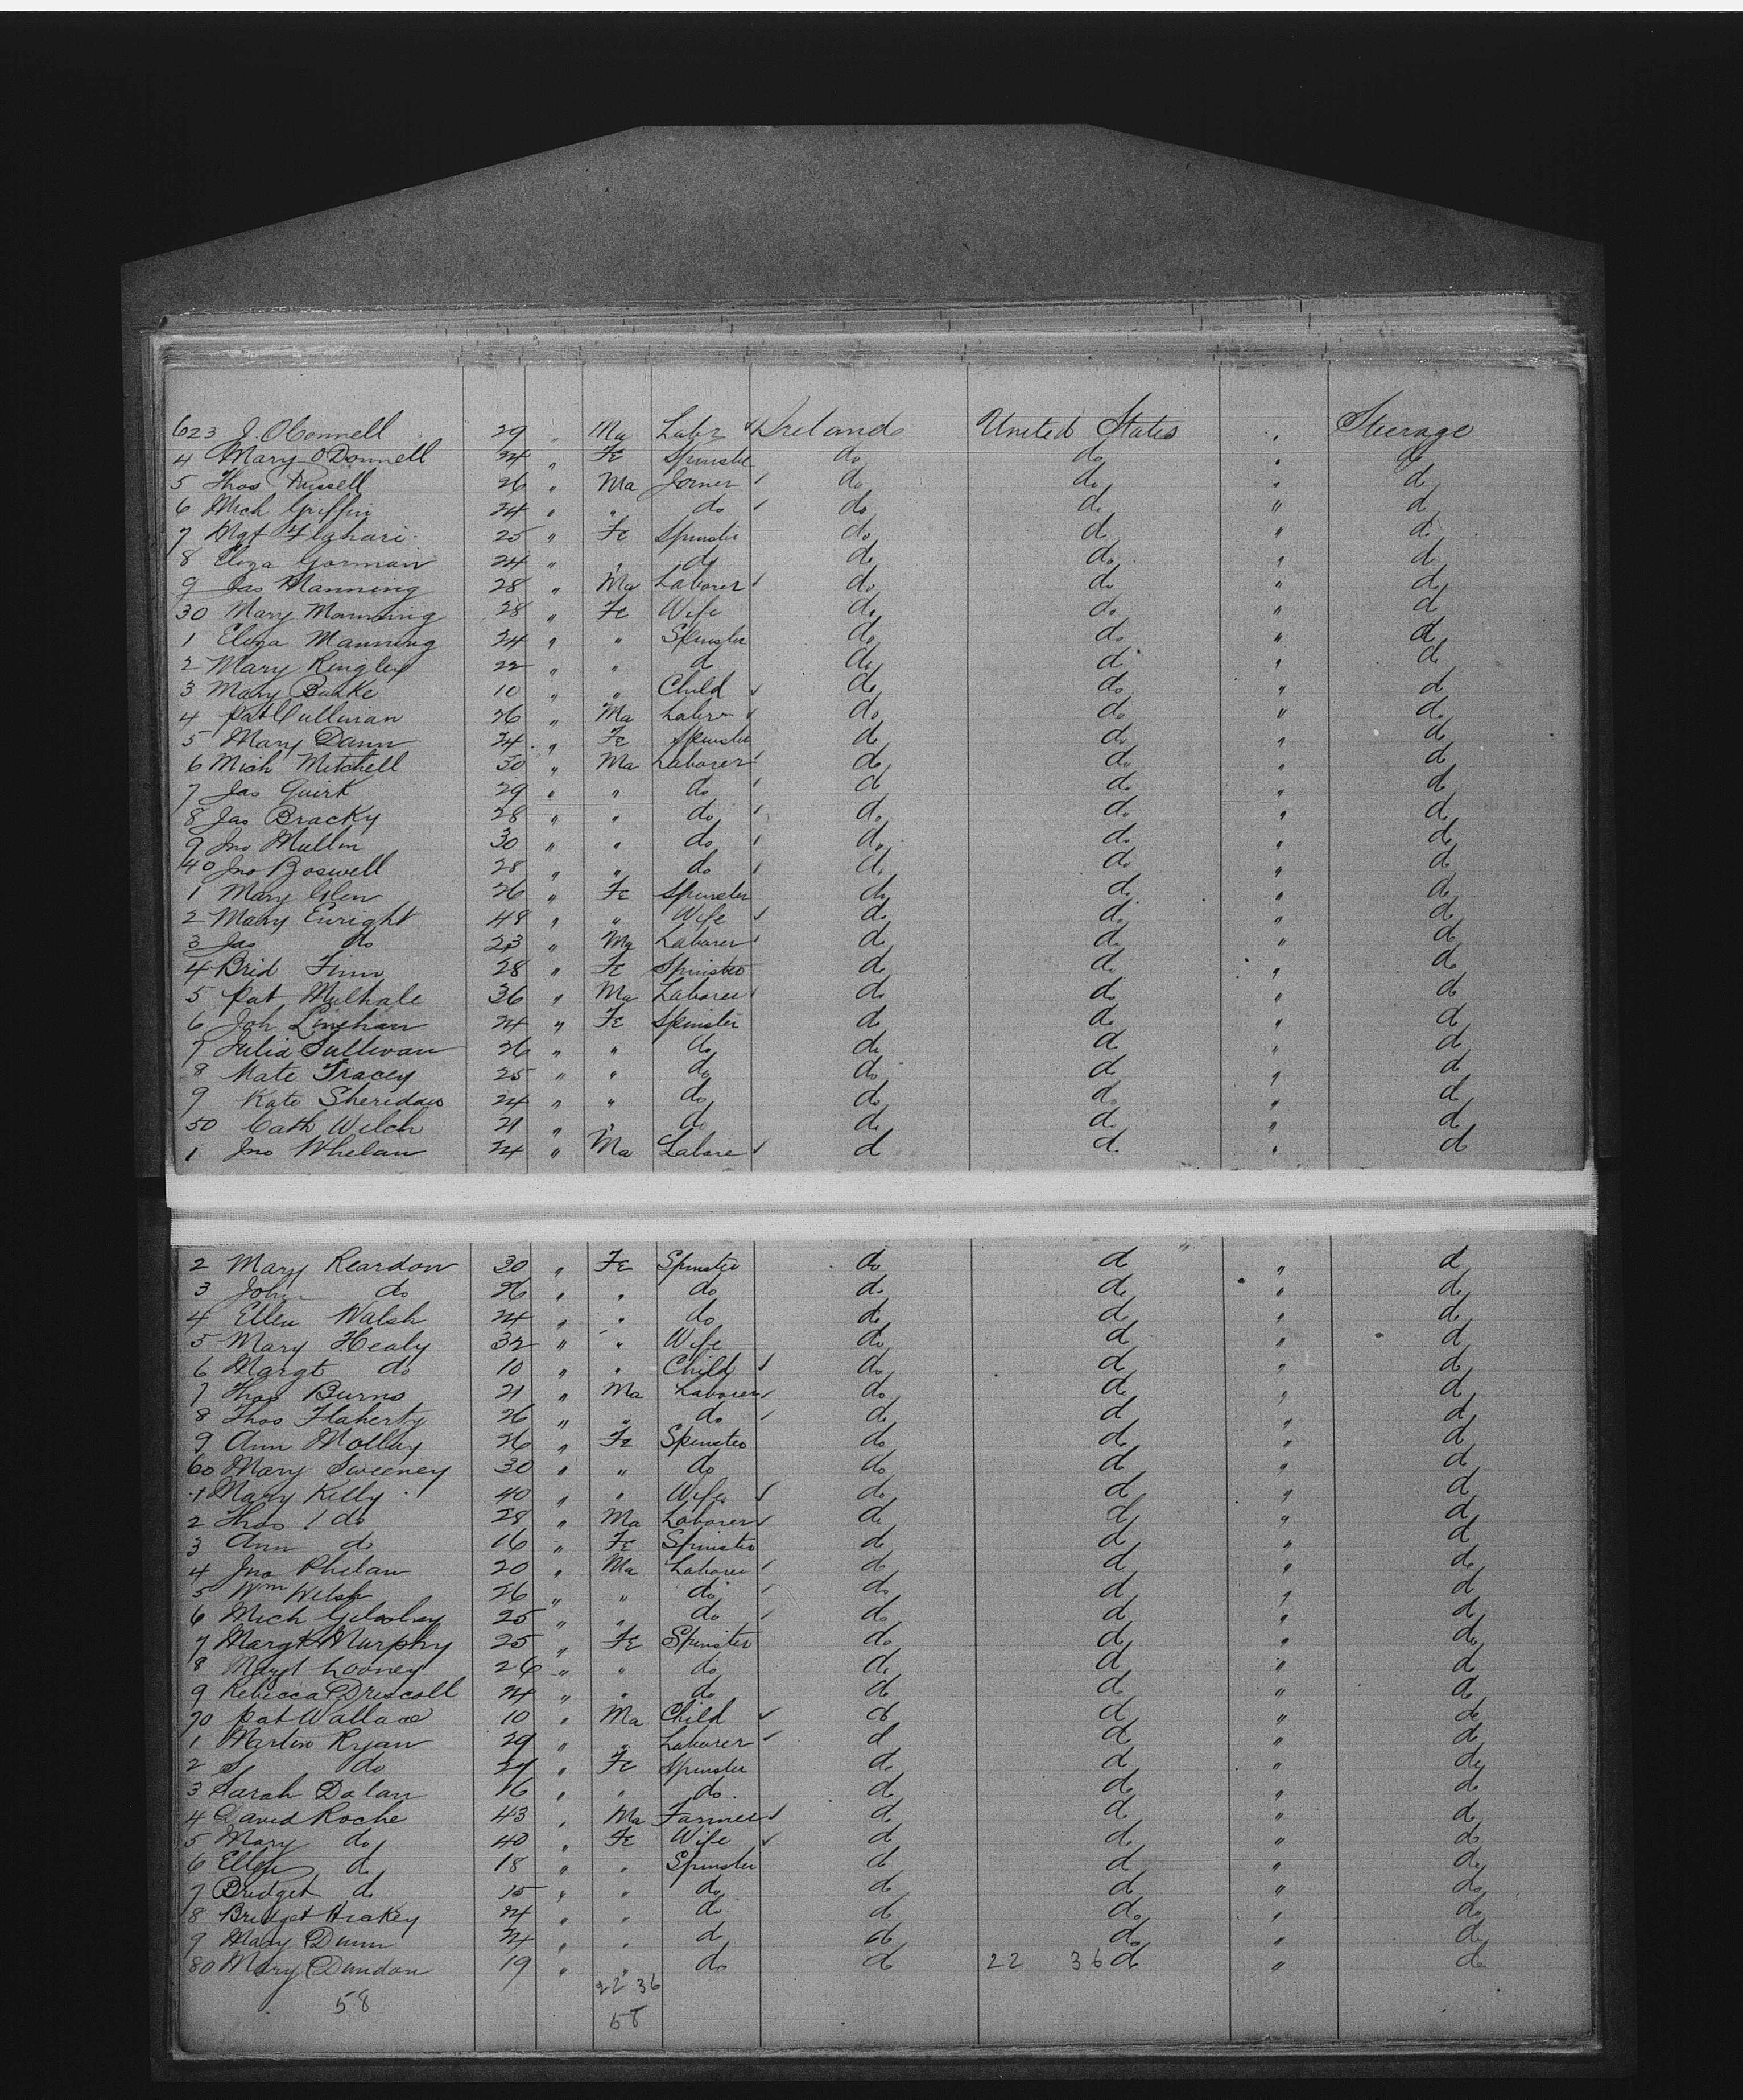 623 J. OConnell 29 " Ma Labr Ireland United States " Steerage
4 Mary ODonnell 24 " Fe Spinster do do " do
5 Thos Russell 26 " Ma Joiner do do " do
6 Mich Griffin 24 " " do do do " do
7 Mgt 25 " Fe Spinster do do " do
8 Eliza Gorman 24 " " do do do " do
9 Jas Manning 28 " Ma Laborer do do " do
30 Mary Manning 28 " Fe Wife do do " do
1 Eliza Manning 24 " " Spinster do do " do
2 Mary Ringley 22 " " do do do " do
3 Mary Burke 10 " " Child do do " do
4 Pat Cullinan 26 " Ma Labr do do " do
5 Mary Dunn 24 " Fe Spinster do do " do
6 Mich Mitchell 30 " Ma Laborer do do " do
7 Jas Quirk 29 " " do do do " do
8 Jas Bracky 28 " " do do do " do
9 Jno Mullin 30 " " do do do " do
40 Jno Boswell 28 " " do do do " do
1 Mary Glen 26 " Fe Spinster do do " do
2 Mary Enright 48 " " Wife do do " do
3 Jas do 23 " Ma Laborer do do " do
4 Brid Finn 28 " Fe Spinster do do " do
5 Pat Mulhale 36 " Ma Laborer do do " do
6 Joh Linehan 24 " Fe Spinster do do " do
7 Julia Sullivan 26 " " do do do " do
8 Kate Tracey 25 " " do do do " do
9 Kate Sheridan 24 " " do do do " do
50 Cath Welch 21 " " do do do " do
1 Jno Whelan 24 " Ma Labore do do " do
2 Mary Reardon 30 " Fe Spinster do do " do
3 Joh do 26 " " do do do " do
4 Ellen Walsh 24 " " do do do " do
5 Mary Healy 32 " " Wife do do " do
6 Margt do 10 " " Child do do " do
7 Thos Burns 21 " Ma Laborer do do " do
8 Thos Flaherty 26 " " do do do " do
9 Ann Molloy 26 " Fe Spinster do do " do
60 Mary Sweeney 30 " " do do do " do
1 Mary Kelly 40 " " Wife do do " do
2 Thos do 28 " Ma Laborer do do " do
3 Ann do 16 " Fe Spinster do do " do
4 Jno Phelan 20 " Ma Laborer do do " do
5 Wm Welsh 26 " " do do do " do
6 Mich 25 " " do do do " do
7 Margt Murphy 25 " Fe Spinster do do " do
8 Margt Looney 26 " " do do do " do
9 Rebecca Driscoll 24 " " do do do " do
70 Pat Wallace 10 " Ma Child do do " do
1 Martin Ryan 29 " " Laborer do do " do
2 S do 27 " Fe Spinster do do " do
3 Sarah Dolan 16 " " do do do " do
4 David Roche 43 " Ma Farmer do do " do
5 Mary do 40 " Fe Wife do do " do
6 Ellen do 18 " " Spinster do do " do
7 Bridget do 15 " " do do do " do
8 Bridget Hickey 24 " " do do do " do
9 Mary Dunn 24 " " do do do " do
80 Mary Dundon 19 " " do do 22 36 do " do
22 36
58 58